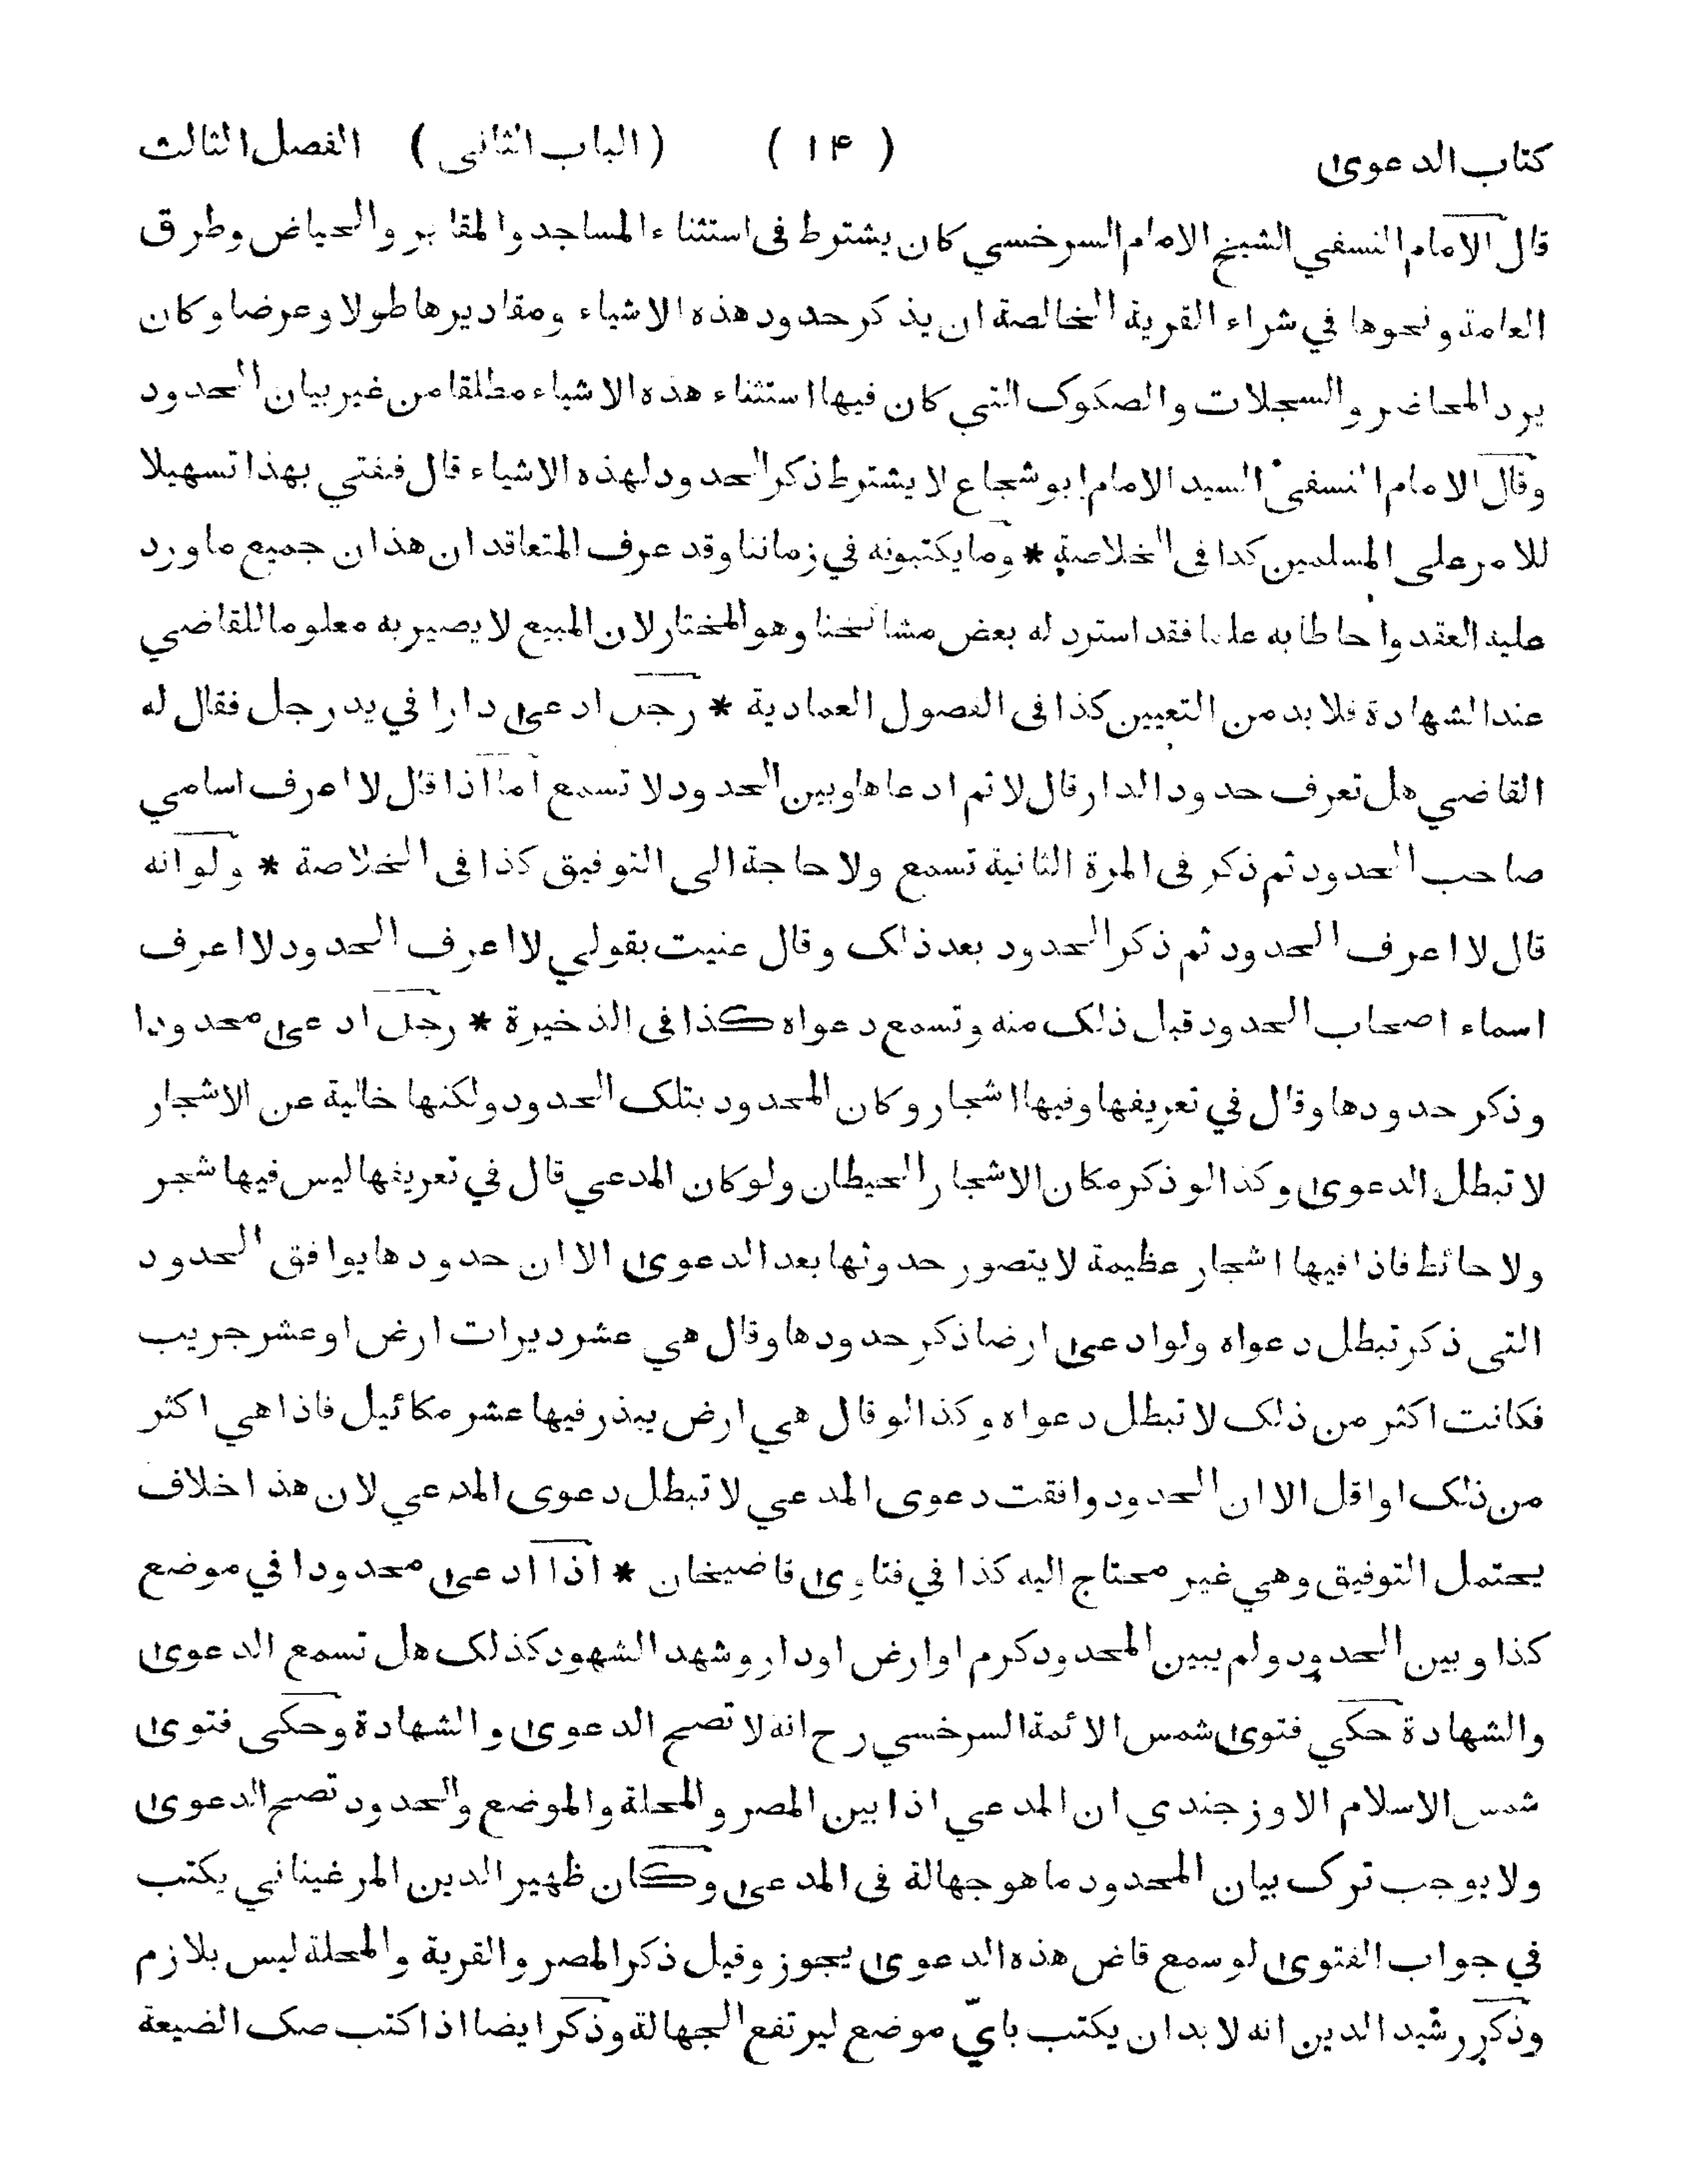 كتاب الدعوى ( ۱۴ ) ( الباب الثانى ) الفصل الثالث
قال الامام النسفي الشيخ الامام السرخسي كان يشترط فى استثناء المساجد والمقابر والحياض وطرق
العامة ونحوها في شراء القرية الخالصة ان يذكر حدود هذه الاشياء ومقاديرها طولا وعرضا وكان
يرد المحاضر والسجلات والصكوك التي كان فيها استثناء هذه الاشياء مطلقا من غير بيان الحدود
وقال الامام النسفى السيد الامام ابو شجاع لا يشترط ذكر الحدود لهذه الاشياء قال فنفتي بهذا تسهيلا
للامر على المسلمين كذا فى الخلاصة * وما يكتبونه في زماننا وقد عرف المتعاقدان هذان جميع ما ورد
عليه العقد واحاطا به علما فقد استرد له بعض مشائخنا وهو المختار لان المبيع لا يصير به معلوما للقاضي
عند الشهادة فلا بد من التعيين كذا فى الفصول العمادية * رجل ادعى دارا في يد رجل فقال له
القاضي هل تعرف حدود الدار قال لا ثم ادعاها وبين الحدود لا تسمع اما اذا قال لا اعرف اسامي
صاحب الحدود ثم ذكر فى المرة الثانية تسمع ولا حاجة الى التوفيق كذا فى الخلاصة * ولو انه
قال لا اعرف الحدود ثم ذكر الحدود بعد ذلك وقال عنيت بقولي لا اعرف الحدود لا اعرف
اسماء اصحاب الحدود قبل ذلك منه وتسمع دعواه كذا فى الذخيرة * رجل ادعى محدودا
وذكر حدودها وقال في تعريفها وفيها اشجار وكان المحدود بتلك الحدود ولكنها خالية عن الاشجار
لا تبطل الدعوى وكذا لو ذكر مكان الاشجار الحيطان ولو كان المدعي قال في تعريفها ليس فيها شجر
ولا حائط فاذا فيها اشجار عظيمة لا يتصور حدوثها بعد الدعوى الا ان حدودها يوافق الحدود
التى ذكر تبطل دعواه ولو ادعى ارضا ذكر حدودها وقال هي عشر ديرات ارض او عشر جريب
فكانت اكثر من ذلك لا تبطل دعواه وكذا لو قال هي ارض يبذر فيها عشر مكائيل فاذا هي اكثر
من ذلك او اقل الا ان الحدود وافقت دعوى المدعي لا تبطل دعوى المدعي لان هذا خلاف
يحتمل التوفيق وهي غير محتاج اليه كذا في فتاوى قاضيخان * اذا ادعى محدودا في موضع
كذا وبين الحدود ولم يبين المحدود كرم او ارض او دار وشهد الشهود كذلك هل تسمع الدعوى
والشهادة حكي فتوى شمس الائمة السرخسي رح انه لا تصح الدعوى والشهادة وحكى فتوى
شمس الاسلام الاوزجندي ان المدعي اذا بين المصر والمحلة والموضع والحدود تصح الدعوى
ولا يوجب ترك بيان المحدود ما هو جهالة فى المدعى وكان ظهير الدين المرغيناني يكتب
في جواب الفتوى لو سمع قاض هذه الدعوى يجوز وقيل ذكر المصر والقرية والمحلة ليس بلازم
وذكر رشيد الدين انه لا بد ان يكتب بايّ موضع ليرتفع الجهالة وذكر ايضا اذا كتب صك الضيعة